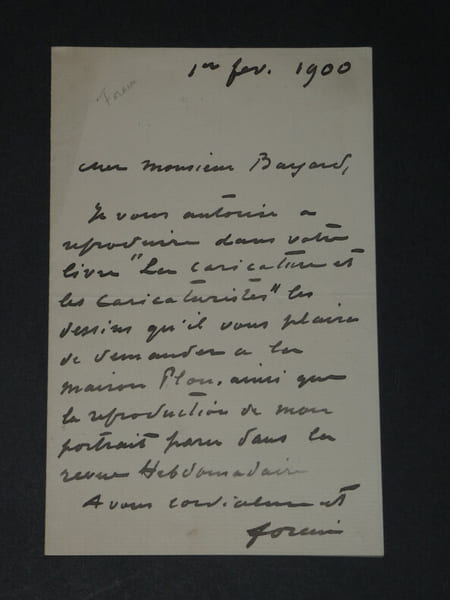 1er fev. 1900
Forain
cher Monsieur Bayard,
Je vous autorise a
reproduire dans votre
livre "La caricature et
les caricaturistes" les
dessins qu'il vous plaira
de demander a la
maison Plon, ainsi que
la reproduction de mon
portrait paru dans la
revue Hebdomadaire
A vous cordialement
forain